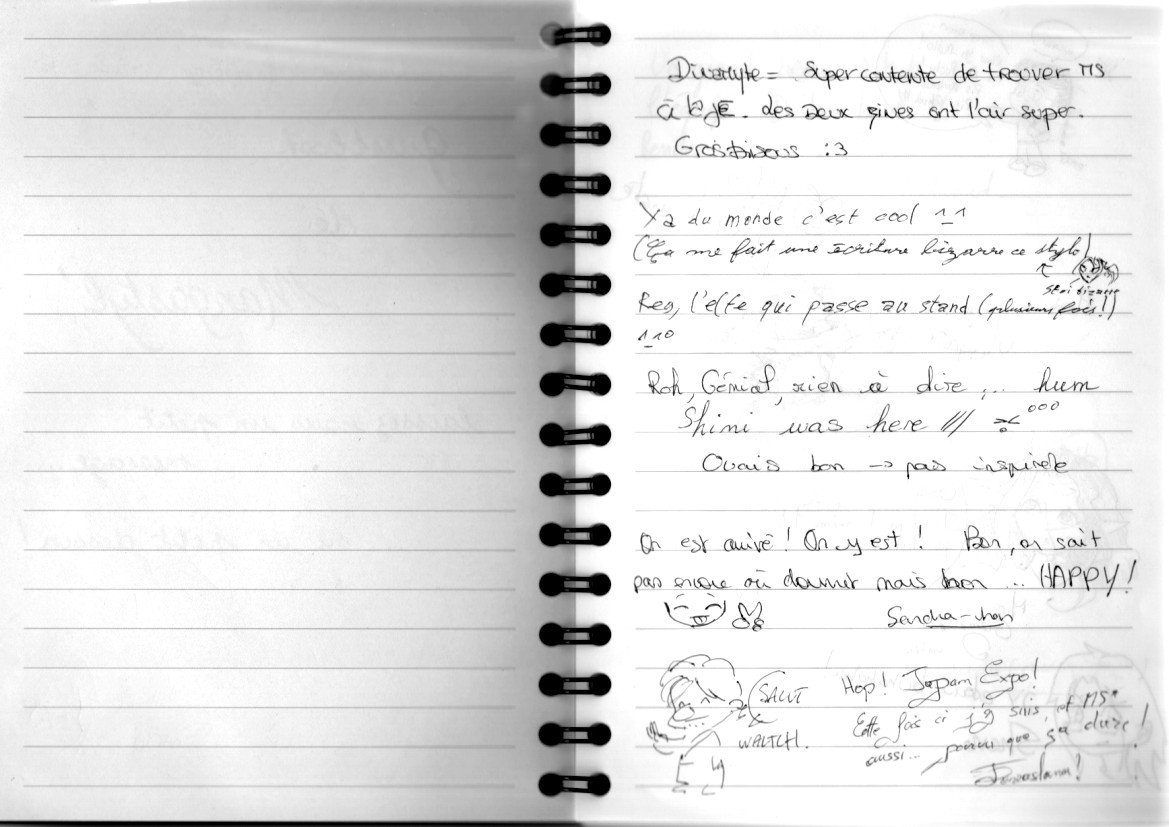 Super contente de trouver MS
à la JE. des Deux ont l'air super.
Gros bisous :3
Y a du monde c'est cool ^_^
(Ça me fait une écriture bizarre ce stylo)
l'elfe qui passe au stand (plusieurs fois!)
^_^°
Roh, Génial, rien à dire ... hum
Shini was here ///
Ouais bon → pas inspirée
On est arrivé ! On y est ! Bon, on sait
pas encore où dormir mais bon ... HAPPY!
Sencha-chan
SALUT
WALTCH.
Hop! Japan Expo!
Cette fois ci j'y suis, et MS*
aussi... pourvu que ça dure!